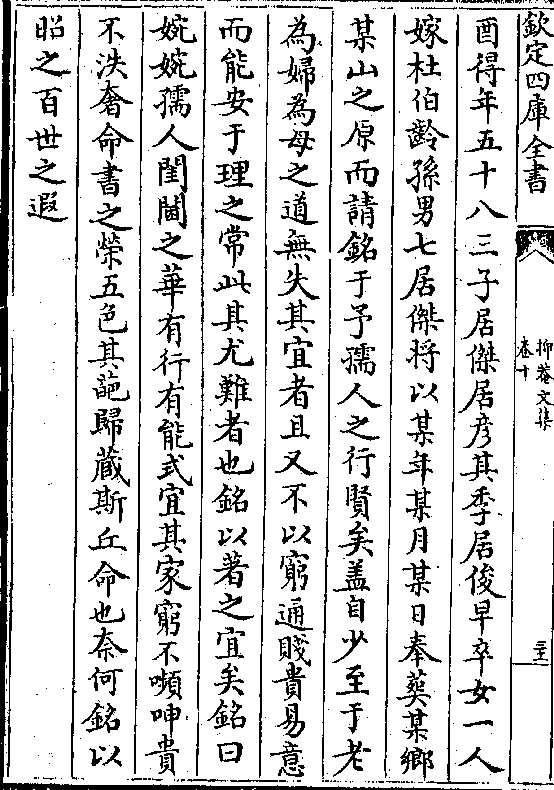 欽定四庫全書
抑菴文集
卷十
三
酉得年五十八三子居傑居彦其季居俊早卒女一人
嫁杜伯齡孫男七居傑將以某年某月某日奉葬某鄉
某山之原而請銘于予孺人之行賢矣蓋自少至于老
為婦為母之道無失其宜者且又不以窮通賤貴易意
而能安于理之常此其尤難者也銘以著之宜矣銘曰
婉婉孺人閨閫之華有行有能式宜其家窮不嚬呻貴
不泆奢命書之榮五色其葩歸藏斯丘命也奈何銘以
昭之百世之遐